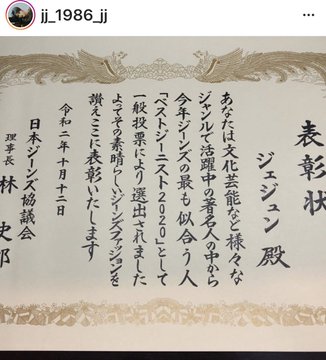 jj_1986_jj
表彰状
ジェジュン 殿
あなたは文化芸能など様々な
ジャンルで活躍中の著名人の中から
今年ジーンズの最も似合う人
「ベストジーニスト2020」として
一般投票により選出されました
よってその素晴らしいジーンズファッションを
讃えここに表彰いたします
令和二年十月十二日
日本ジーンズ協議会
理事長 林 史郎